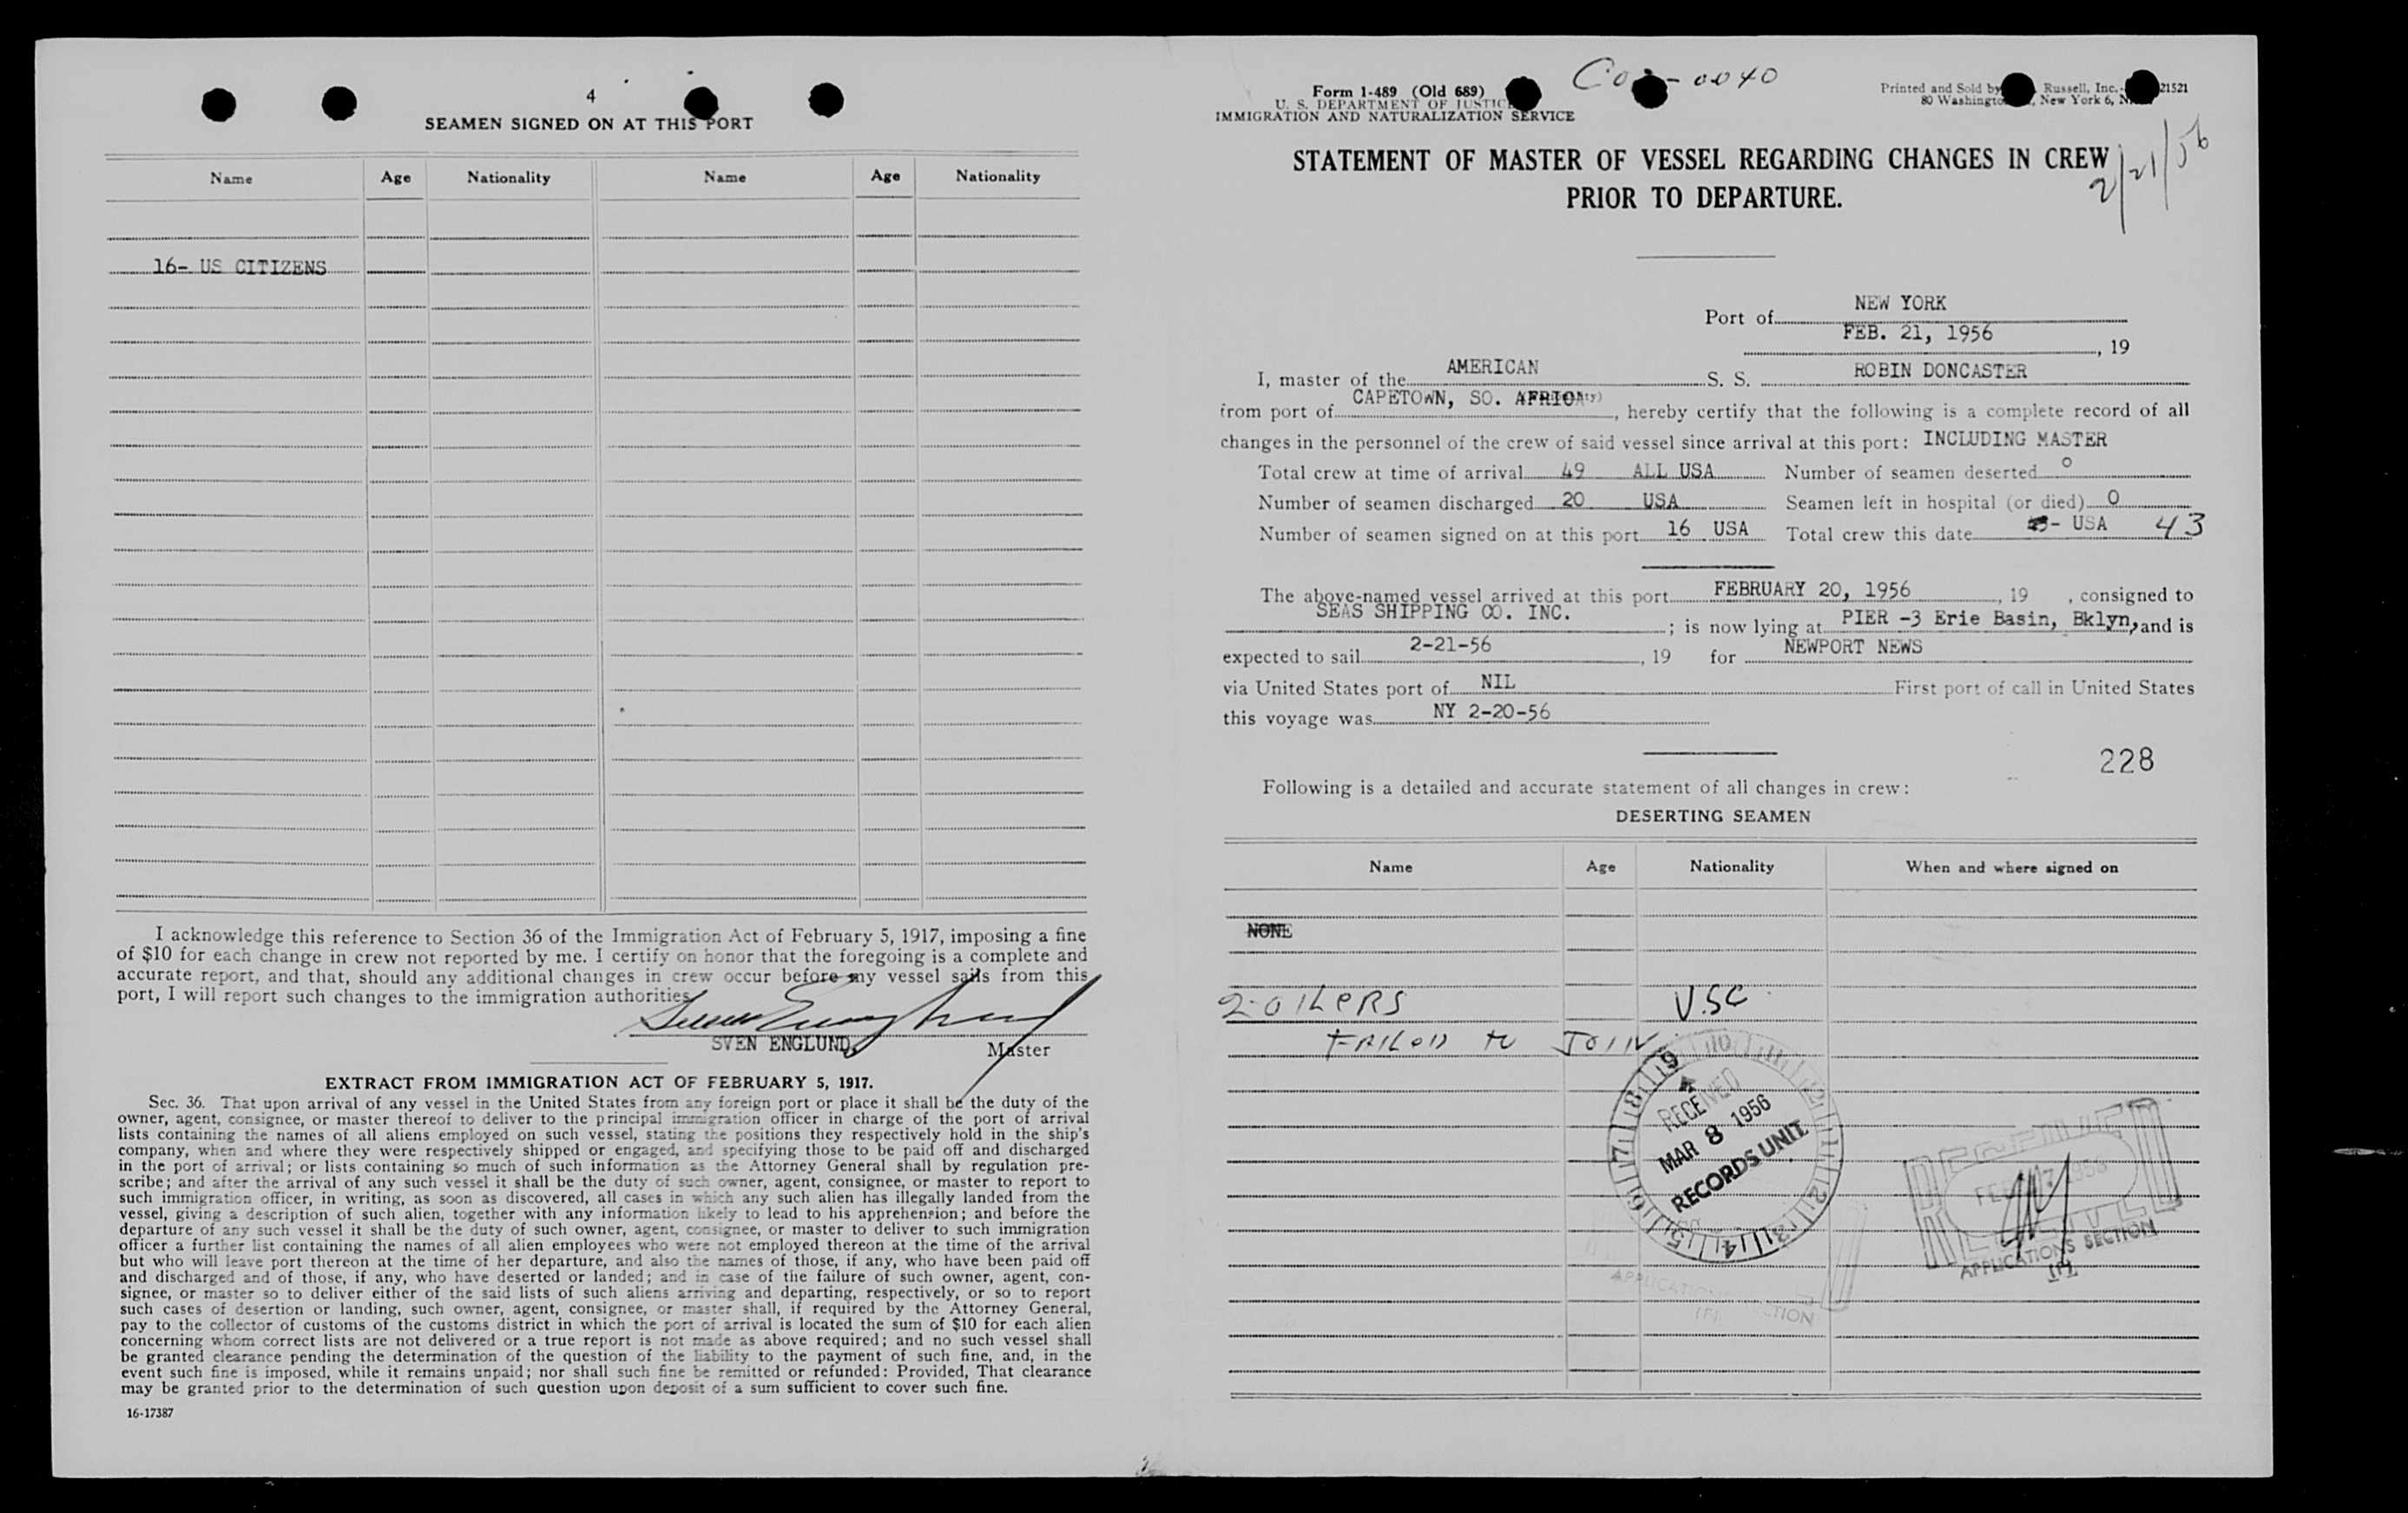 4
SEAMEN SIGNED ON AT THIS PORT
Name Age Nationality Name Age Nationality
16- US CITIZENS
I acknowledge this reference to Section 36 of the Immigration Act of February 5, 1917, imposing a fine
of $10 for each change in crew not reported by me. I certify on honor that the foregoing is a complete and
accurate report, and that, should any additional changes in crew occur before my vessel sails from this
port, I will report such changes to the immigration authorities.
SVEN ENGLUND,
Master
EXTRACT FROM IMMIGRATION ACT OF FEBRUARY 5, 1917.
Sec. 36. That upon arrival of any vessel in the United States from any foreign port or place it shall be the duty of the
owner, agent, consignee, or master thereof to deliver to the principal immigration officer in charge of the port of arrival
lists containing the names of all aliens employed on such vessel, stating the positions they respectively hold in the ship's
company, when and where they were respectively shipped or engaged, and specifying those to be paid off and discharged
in the port of arrival; or lists containing so much of such information as the Attorney General shall by regulation pre-
scribe; and after the arrival of any such vessel it shall be the duty of such owner, agent, consignee, or master to report to
such immigration officer, in writing, as soon as discovered, all cases in which any such alien has illegally landed from the
vessel, giving a description of such alien, together with any information likely to lead to his apprehension; and before the
departure of any such vessel it shall be the duty of such owner, agent, consignee, or master to deliver to such immigration
officer a further list containing the names of all alien employees who were not employed thereon at the time of the arrival
but who will leave port thereon at the time of her departure, and also the names of those, if any, who have been paid off
and discharged and of those, if any, who have deserted or landed; and in case of the failure of such owner, agent, con-
signee, or master so to deliver either of the said lists of such aliens arriving and departing, respectively, or so to report
such cases of desertion or landing, such owner, agent, consignee, or master shall, if required by the Attorney General,
pay to the collector of customs of the customs district in which the port of arrival is located the sum of $10 for each alien
concerning whom correct lists are not delivered or a true report is not made as above required; and no such vessel shall
be granted clearance pending the determination of the question of the liability to the payment of such fine, and, in the
event such fine is imposed, while it remains unpaid; nor shall such fine be remitted or refunded: Provided, That clearance
may be granted prior to the determination of such question upon deposit of a sum sufficient to cover such fine.
16-17387
Form 1-489 (Old 689)
U. S. DEPARTMENT OF JUSTICE
IMMIGRATION AND NATURALIZATION SERVICE
0040
Printed and Sold by Russell, Inc. 21521
80 Washington, New York 6, N.
STATEMENT OF MASTER OF VESSEL REGARDING CHANGES IN CREW
PRIOR TO DEPARTURE.
2/21/56
Port of NEW YORK
FEB. 21, 1956, 19
I, master of the AMERICAN S. S. ROBIN DONCASTER
from port of CAPETOWN, SO. AFRICA, hereby certify that the following is a complete record of all
changes in the personnel of the crew of said vessel since arrival at this port: INCLUDING MASTER
Total crew at time of arrival 49 ALL USA Number of seamen deserted 0
Number of seamen discharged 20 USA Seamen left in hospital (or died) 0
Number of seamen signed on at this port 16 USA Total crew this date - USA 43
The above-named vessel arrived at this port FEBRUARY 20, 1956, 19 , consigned to
SEAS SHIPPING CO. INC.; is now lying at PIER -3 Erie Basin, Bklyn, and is
expected to sail 2-21-56, 19 for NEWPORT NEWS
via United States port of NIL First port of call in United States
this voyage was NY 2-20-56
228
Following is a detailed and accurate statement of all changes in crew:
DESERTING SEAMEN
Name Age Nationality When and where signed on
NONE
2-OILERS U.S.C.
FAILED TO JOIN
RECEIVED
MAR 8 1956
RECORDS UNIT
RECEIVED
1956
APPLICATIONS SECTION